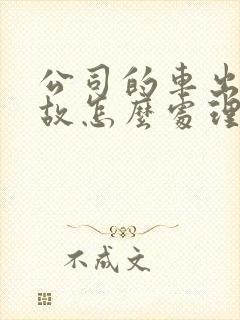 公司的車出
故怎麼處理
不成文